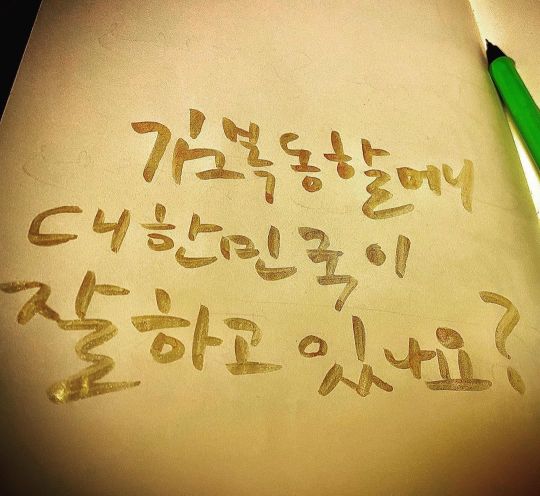 김복동할머니
대한민국이
잘하고 있나요?